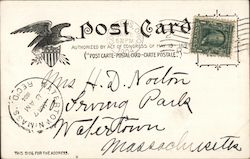 Post Card
AUTHORIZED BY ACT OF CONGRESS OF MAY 19, 1898
("POST CARTE-POSTAL-CARD-CARTE POSTALE")
Mrs H. D. Norton
Irving Park
Watertown
Massachusetts
THIS SIDE FOR THE ADDRESS.